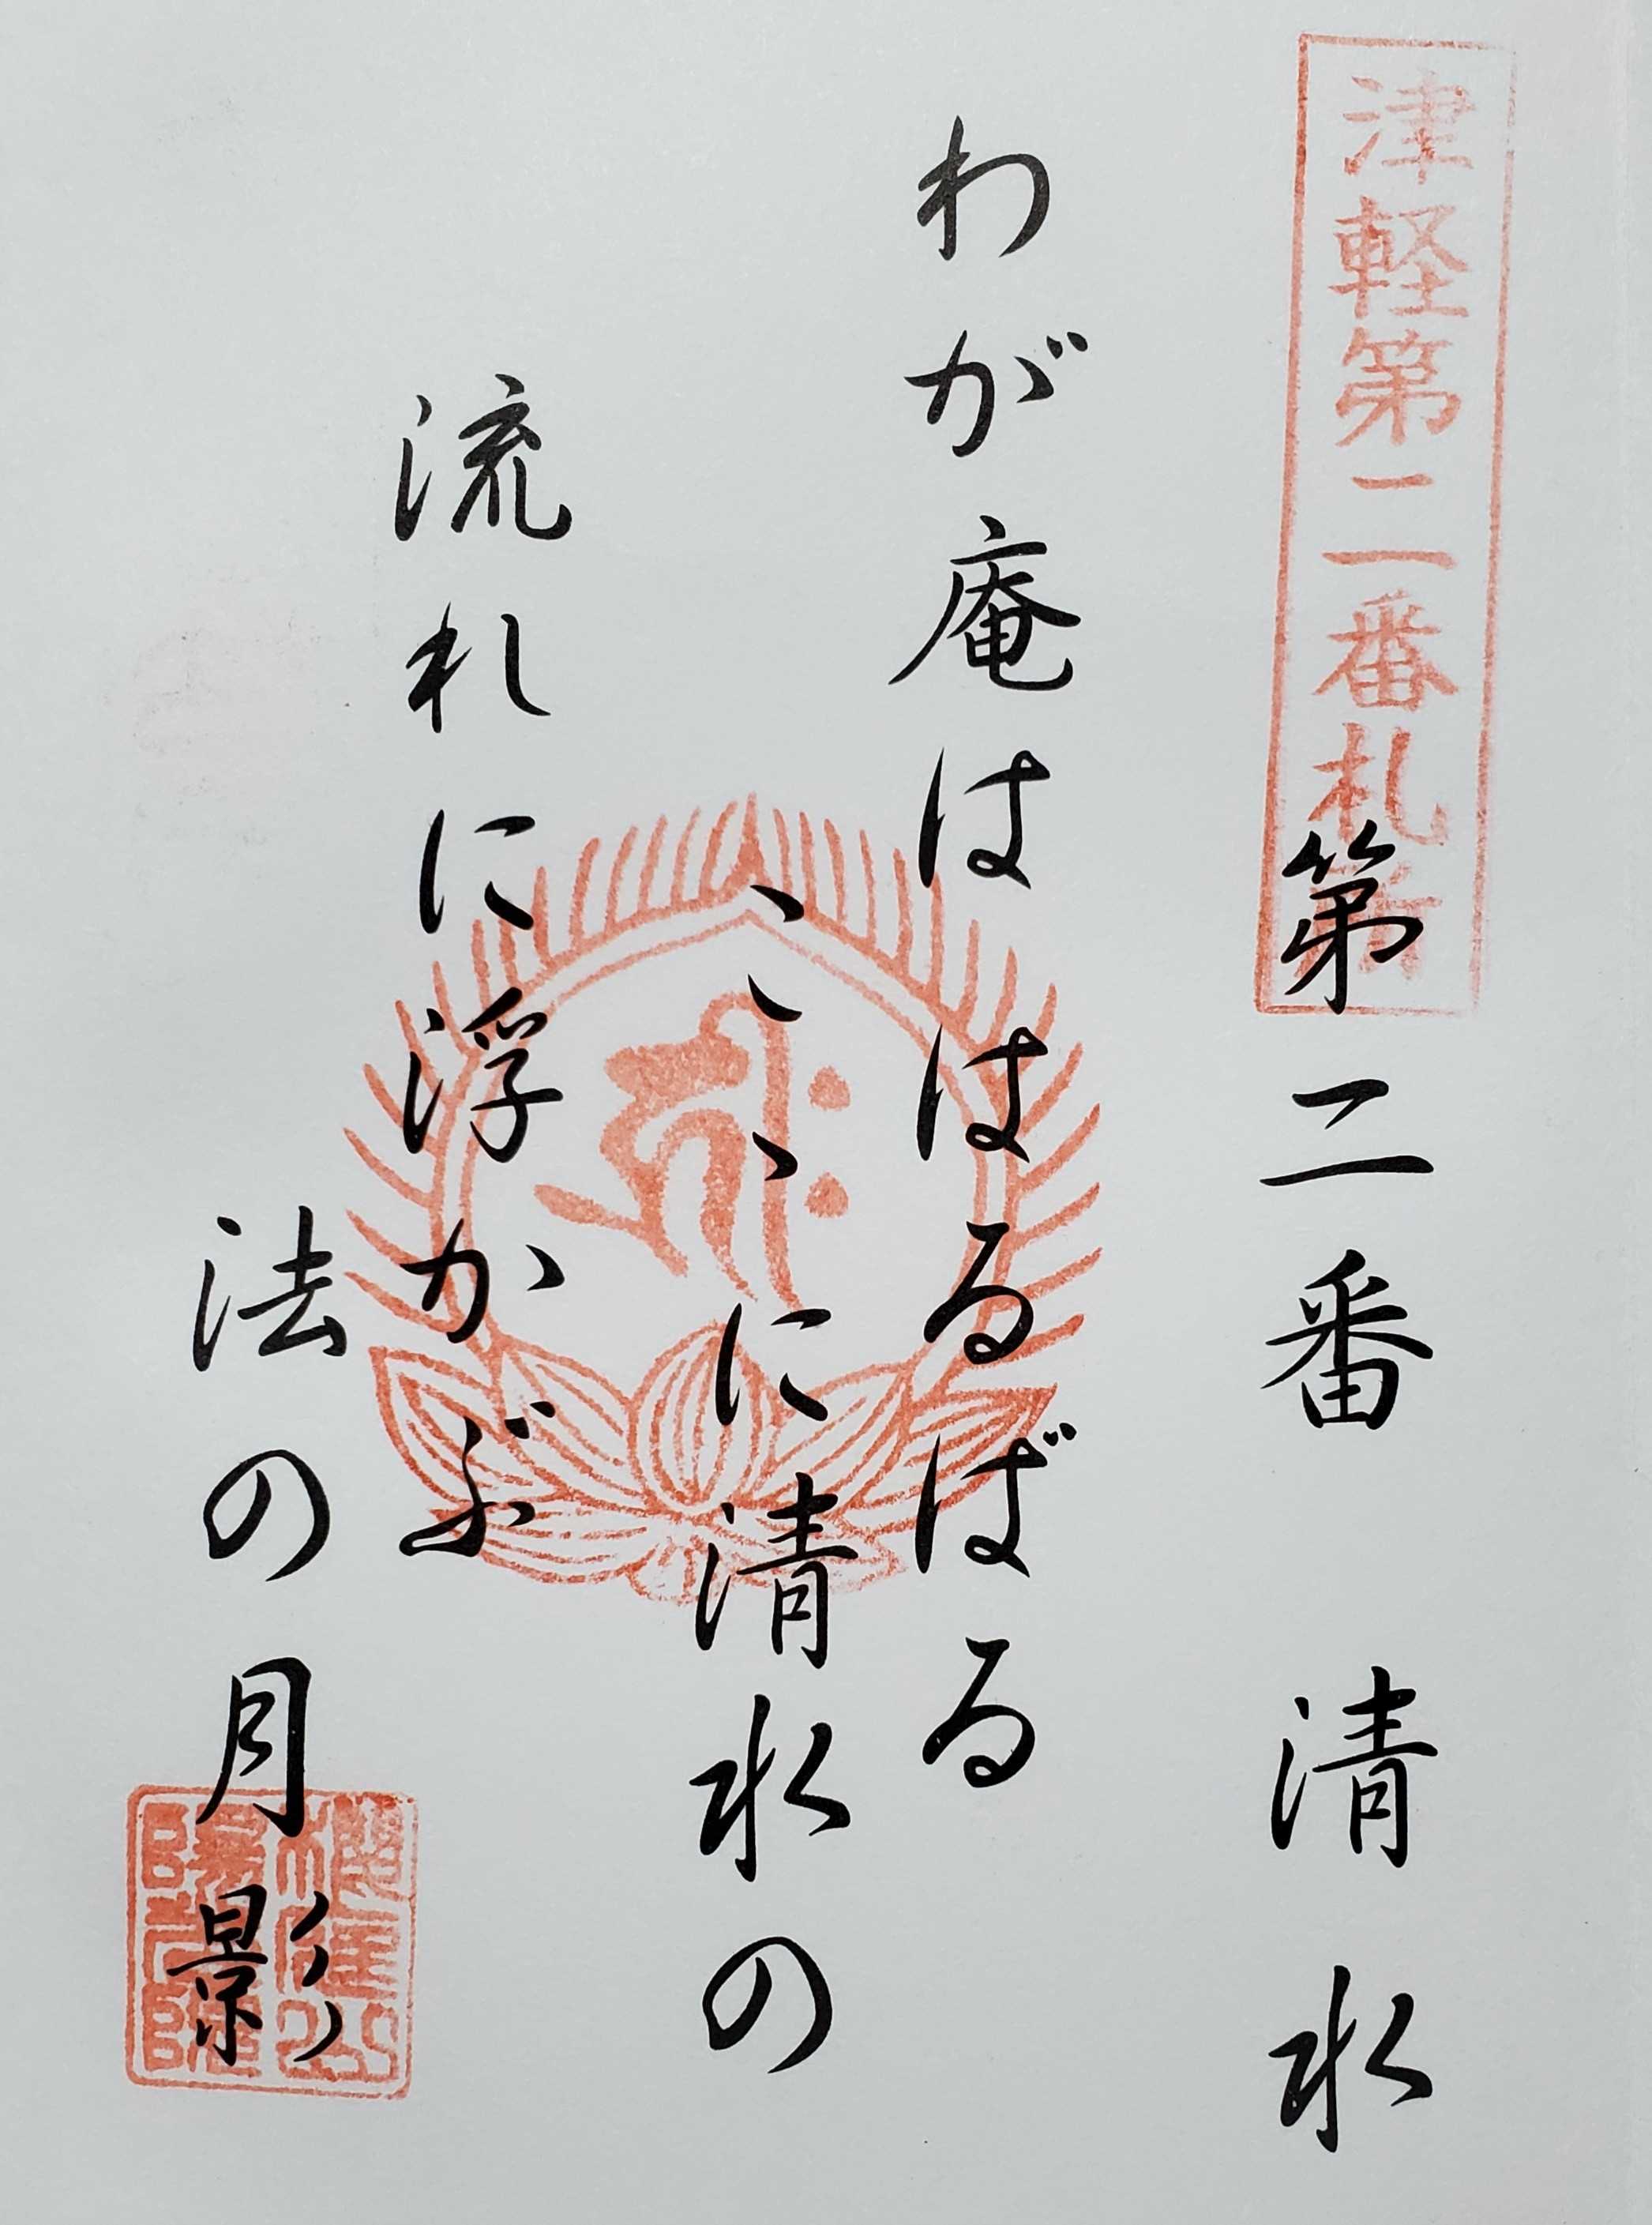 津軽第二番札所
第二番 清水
わが庵ははるばる
こゝに清水の
流れに浮かぶ
法の月影